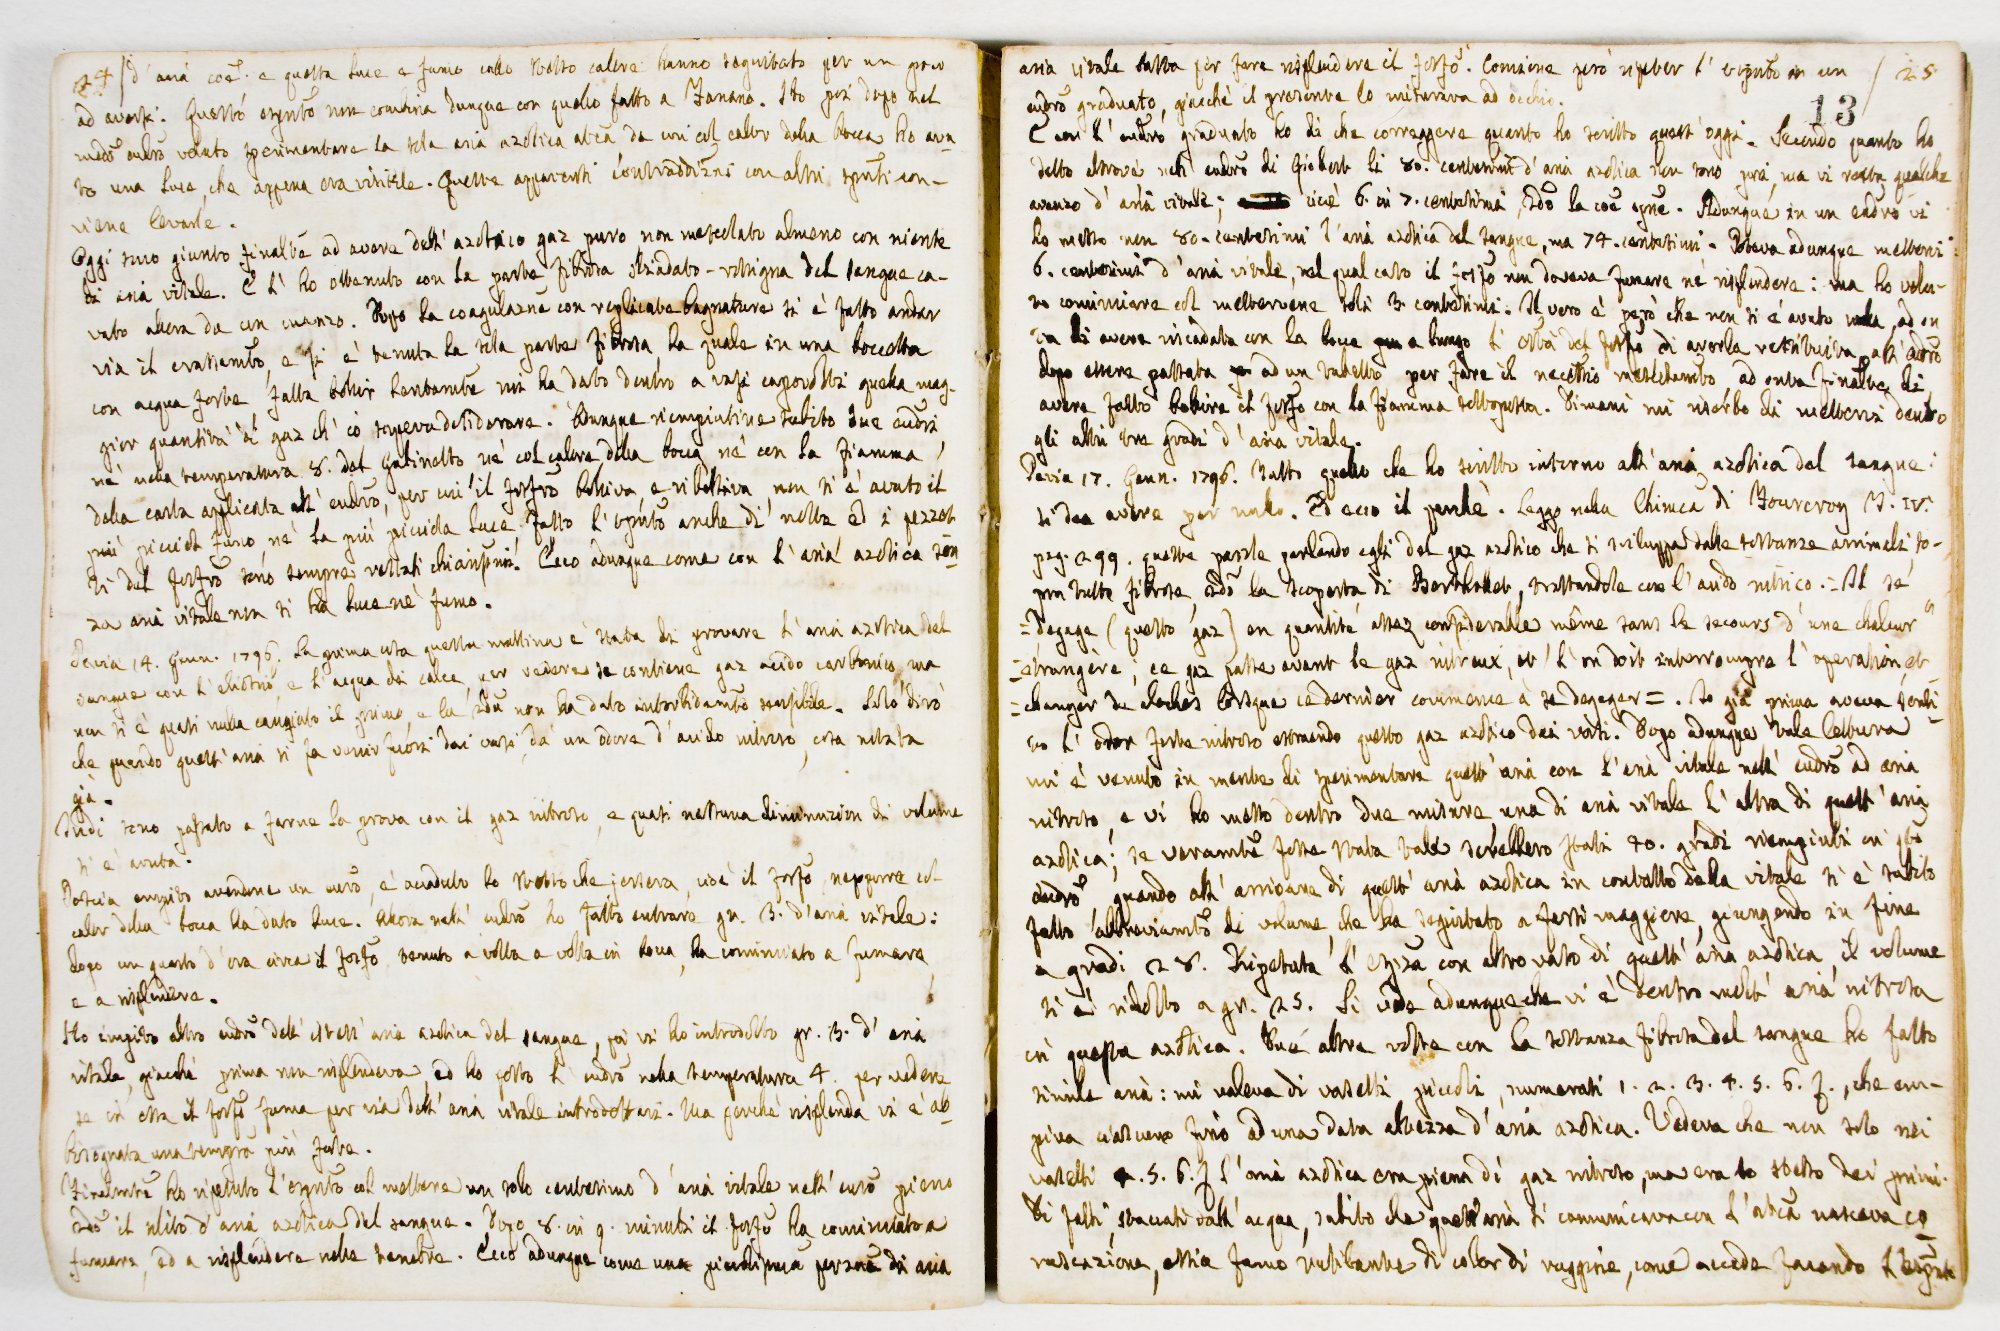 24 / d'aria coe. e questa luce e fumo collo stesso calore hanno seguitato per un poco
ad aversi. Questo espto non combina dunque con quello fatto a Fanano. Ho poi dopo nel
medo eudro voluto sperimentare la sola aria azotica ... da cui col calor della bocca ho avu-
to una luce, che appena era visibile. Queste apparenti contraddizni con altri sputi con-
viene levarle.
Oggi sono giunto finalte ad avere dell'azotico gaz puro non mescolato almeno con niente
di aria vitale. E l'ho ottenuto con la parte fibrosa del sangue ca-
vato allora da un manzo. Dopo la coagulazne con replicate bagnature si è fatto andar
via il crassamto, e si è tenuta la sola parte fibrosa, la quale in una boccetta
con acqua forte fatta bollir lentamte mi ha dato dentro a vasi capovolti quella mag-
gior quantità di gaz ch'io sapeva desiderare. Adunque riempiutine subito due eudri
nè nella temperatura 8. del Gabinetto, nè col calore della bocca, nè con la fiamma
della carta applicata all'eudro, per cui il fosfro bolliva, e ribolliva, non si è avuto il
più piccol fumo, nè la più piccola luce. Fatto l'espto anche di notte ed i pezzet-
ti del fosfro sono sempre restati chiarissmi. Ecco adunque come con l'aria azotica sen-
za aria vitale non si ha luce nè fumo.
Pavia 14. Genn. 1796. La prima cosa questa mattina è stata di provare l'aria azotica del
sangue con l', e l'acqua di calce, per vedere se contiene gaz acido carbonico, ma
non si è quasi nulla cangiato il primo, e la 2da non ha dato intorbidamto sensibile. Solo dirò
che quando quest'aria si fa venir fuori dai vasi, dà un odore d'acido nitroso, cosa notata
già.
Indi sono passato a farne la prova con il gaz nitroso, e quasi nessuna diminuzion di volume
si è avuta.
Poscia empito avendone un eudro, è accaduto lo stesso che jersera, cioè il fosfo neppure col
calor della bocca ha dato luce. Allora nell'eudro ho fatto entrare gr. 3. d'aria vitale:
dopo un quarto d'ora circa il fosfo tenuto a volta a volta in bocca, ha cominciato a fumare
e a risplendere.
Ho empito altro eudro dell'istess'aria azotica del sangue, poi vi ho introdotto gr. 3. d'aria
vitale, giacchè prima non risplendeva, ed ho posto l'eudro nella temperatura 4. per vedere
se in essa il fosfo fuma per via dell'aria vitale introdottavi. Ma perchè risplenda vi è ab-
bisognata una tempra più forte.
Finalmte ho ripetuto l'espto col mettere un solo centesimo d'aria vitale nell'eudro pieno
2do il solito d'aria azotica del sangue. Dopo 8. in 9. minuti il fosfo ha cominciato a
fumare, ed a risplendere nelle tenebre. Ecco adunque come una piccolissma porzne di aria
/ 25
13
aria vitale basta per fare risplendere il fosfo. Conviene però ripeter l'espto in un
eudro graduato, giacchè il presente lo misurava ad occhio.
E con l'eudro graduato ho di che correggere quanto ho scritto quest'oggi. Secondo quanto ho
detto altrove nell'eudro di Giobert li 80. centesimi d'aria azotica non sono puri, ma vi resta qualche
avanzo d'aria vitale; cioè 6. in 7. centesimi, 2do la coe opne. Adunque in un eudro vi
ho messo non 80. centesimi d'aria azotica del sangue, ma 74. centesimi. Doveva adunque mettervi
6. centesimi d'aria vitale, nel qual caso il fosfo non doveva fumare nè risplendere: ma ho volu-
to cominciare col mettervene soli 3. centesimi. Il vero è però che non si è avuto nulla, ad on
ta di avere riscaldata con la bocca a lungo l' del fosfo di averla restituita all'eudro
dopo essere passata ad un vasetto per fare il necessrio mescolamto, ad onta finalte di
avere fatto bollire il fosfo con la fiamma sottoposta. Dimani mi riserbo di mettervi dentro
gli altri tre gradi d'aria vitale.
Pavia 17. Genn. 1796. Tutto quello che ho scritto intorno all'aria azotica del sangue
si dee avere per nullo. Ed ecco il perchè. Leggo nella Chimica di Fourcroy T. IV.
pag. 299. queste parole parlando egli del gaz azotico che si sviluppa dalle sostanze animali so-
pra tutto fibrose, 2do la scoperta di Berthollet, trattandole con l'acido nitrico. = Il se
= degage (questo gaz) en quantité assez considerable même sans le secours d'une chaleur
= étrangère; ce gaz passe avant le gaz nitreux, et l'on doit interrompre l'operation, et
= changer de cloches lorsque ce dernier commence à se degager =. Io già prima aveva senti-
to l'odor forte nitroso estraendo questo gaz azotico dai vasi. Dopo adunque tale lettura
mi è venuto in mente di sperimentare quest'aria con l'aria vitale nell'eudro ad aria
nitrosa, e vi ho messo dentro due misure una di aria vitale l'altra di quest'aria
azotica; se veramte fosse stata tale sarebbero stati 40. gradi riempiuti in qto
eudro, quando all'arrivare di quest'aria azotica in contatto della vitale si è subito
fatto abbreviamto di volume, che ha seguitato a farsi maggiore, giungendo in fine
a gradi 28. Ripetuta l'espza con altro vaso di quest'aria azotica il volume
si è ridotto a gr. 25. Si vede adunque che vi è dentro molt'aria nitrosa
in questa azotica. Due altre volte con la sostanza fibrosa del sangue ho fatto
simile aria: mi valeva di vasetti piccoli, numerati 1. 2. 3. 4. 5. 6. 7., che em-
piva ciascuno fino ad una data altezza d'aria azotica. Vedeva che non solo nei
vasetti 4. 5. 6. 7 l'aria azotica era piena di gaz nitroso, ma era lo stesso dei primi.
Di fatti staccati dall'acqua, subito che quest'aria si comunicava con l'atca nasceva co
ruscazione, ossia fumo rutilante di color di ruggine, come accade facendo l'espza